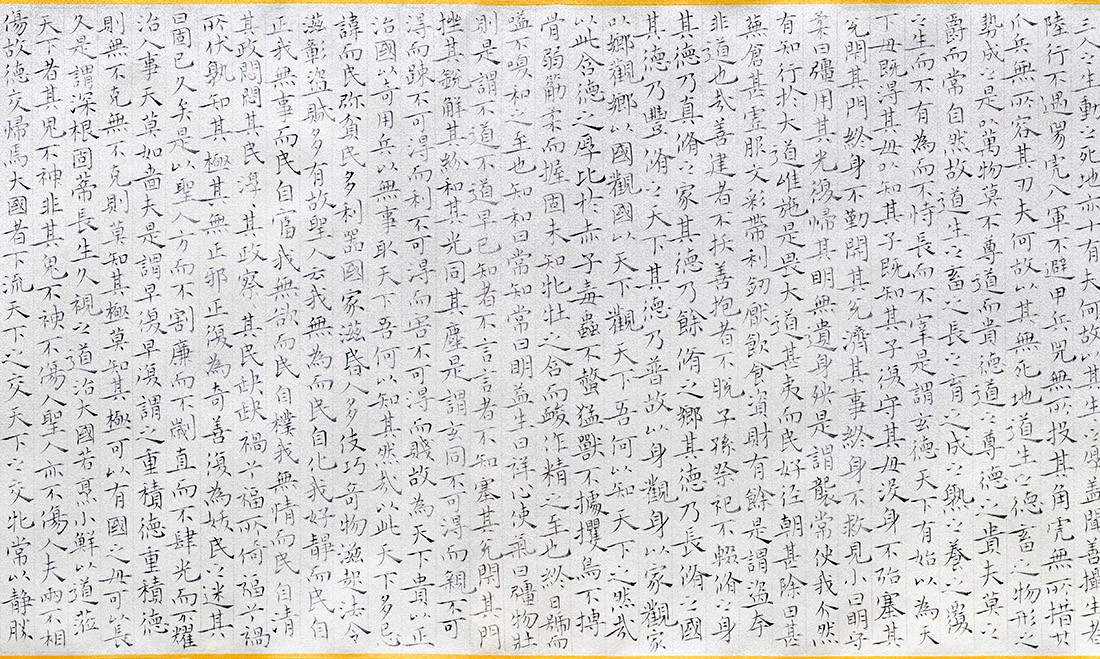 三人之生動之死地亦十有夫何故以其生之厚蓋聞善攝生者
陸行不遇兕虎入軍不避甲兵兕無所投其角虎無所措其
爪兵無所容其刃夫何故以其無死地道生之德畜之物形之
勢成之是以萬物莫不尊道而貴德道之尊德之貴夫莫之
爵而常自然故道生之畜之長之育之成之熟之養之覆
之生而不有為而不恃長而不宰是謂玄德天下有始以為天
下母既得其母以知其子既知其子復守其母沒身不殆塞其
兌閉其門終身不勤開其兌濟其事終身不救見小曰明守
柔曰彊用其光復歸其明無遺身殃是謂襲常使我介然
有知行於大道唯施是畏大道甚夷而民好徑朝甚除田甚
蕪倉甚虛服文彩帶利劒厭飲食資財有餘是謂盜夸
非道也哉善建者不拔善抱者不脫子孫祭祀不輟脩之身
其德乃真脩之家其德乃餘脩之鄉其德乃長脩之國
其德乃豐脩之天下其德乃普故以身觀身以家觀家
以鄉觀鄉以國觀國以天下觀天下吾何以知天下之然哉
以此含德之厚比於赤子毒蟲不螫猛獸不據攫鳥不搏
骨弱筋柔而握固未知牝牡之合而酸作精之至也終日號而
嗌不嗄和之至也知和曰常知常曰明益生曰祥心使氣曰彊物壯
則是謂不道不道早已知者不言言者不知塞其兌閉其門
挫其銳解其紛和其光同其塵是謂玄同不可得而親不可
得而踈不可得而利不可得而害不可得而賤故為天下貴以正
治國以奇用兵以無事取天下吾何以知其然哉以此天下多忌
諱而民弥貧民多利器國家滋昏人多伎巧奇物滋起法令
滋彰盜賊多有故聖人云我無為而民自化我好靜而民自
正我無事而民自富我無欲而民自樸我無情而民自清
其政悶悶其民淳其政察其民缺缺禍兮福所倚福兮禍
所伏孰知其極其無正邪正復為奇善復為妖民之迷其
日固已久矣是以聖人方而不割廉而不劌直而不肆光而不耀
治人事天莫如嗇夫是謂早復早復謂之重積德重積德
則無不克無不克則莫知其極莫知其極可以有國之母可以長
久是謂深根固蒂長生久視之道治大國若烹小鮮以道蒞
天下者其鬼不神非其鬼不神不傷人聖人亦不傷人夫兩不相
傷故德交歸焉大國者下流天下之交天下之交牝常以静勝